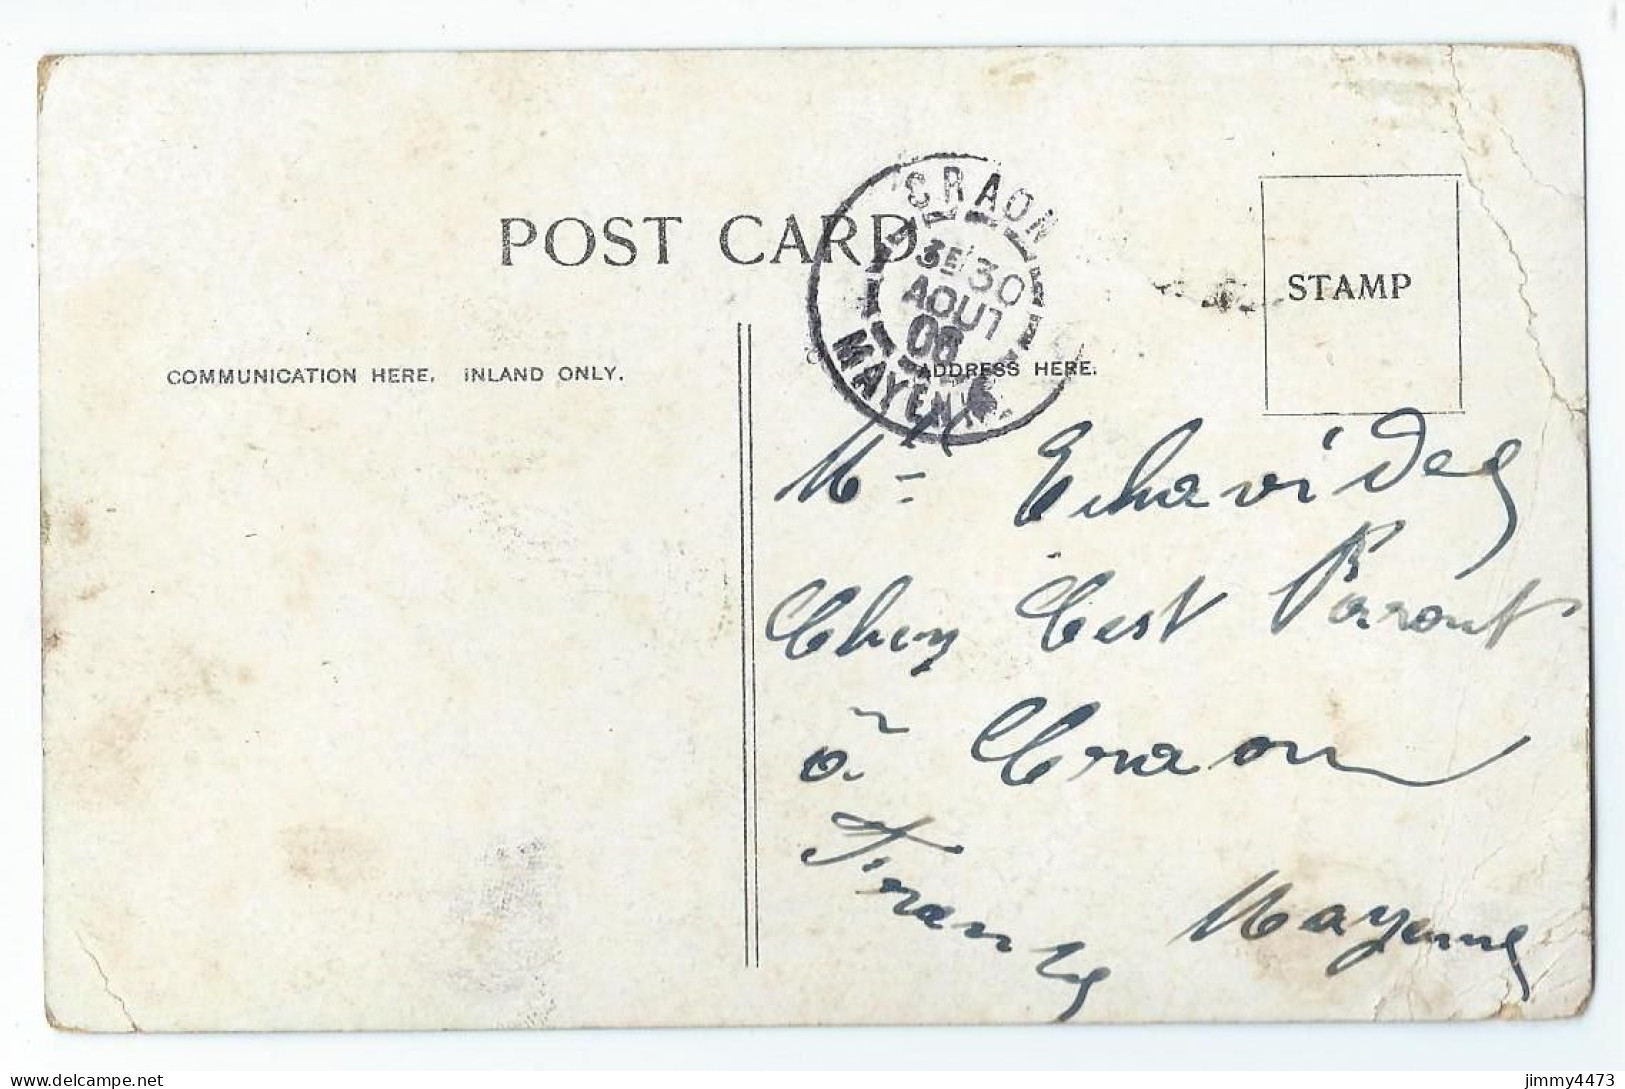 POST CARD
CRAON
3E 30
AOUT
06
MAYENNE
STAMP
COMMUNICATION HERE. INLAND ONLY.
ADDRESS HERE.
Chez Cest Parent
à Craon
France Mayenne
jimmy4473